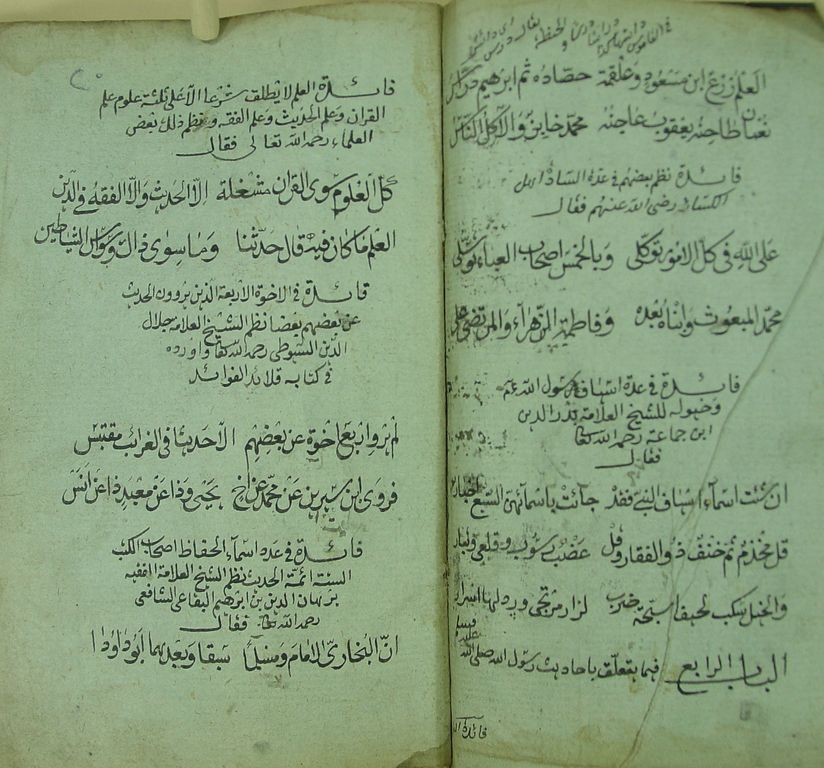 العلم زرع ابن مسعود وعلقمة حصاده ثم ابرهيم
نعمان طاحنه يعقوب عاجنه محمد خابز والآكل الناس
فائدة نظم بعضهم في عدة السادة اهل
الكساء رضى الله عنهم فقال
على الله في كل الامور توكلى وبالخمس اصحاب العباء توسلى
محمد المبعوث وابناه بعده وفاطمة الزهراء والمرتضى على
فائدة في عدة اسياف رسول الله
وخيوله للشيخ العلامة بدر الدين
ابن جماعة رحمه الله تعا
فقال
ان شئت اسماء اسياف النبي فقد جائت باسمائهن السبع اخبار
قل مخذم ثم حتف ذو الفقار وقل عضب رسوب وقلعى وبتار
والخيل سكب لحيف سبحة ضرب لزاز مرتجى ورد لها اسرار
الباب الرابع فيما يتعلق باحاديث رسول الله صلى الله
عليه
وسلم
فائدة
فائدة العلم لا يطلق شرعا الا على ثلثة علوم علم
القران وعلم الحديث وعلم الفقه ونظم ذلك بعض
العلماء رحمه الله تعالى فقال
كل العلوم سوى القران مشغلة الا الحديث والا الفقه في الدين
العلم ما كان فيه قال حدثنا وما سوى ذاك وسواس الشياطين
فائدة في الاخوة الاربعة الذين يروون الحديث
عن بعضهم بعضا نظم الشيخ العلامة جلال
الدين السيوطى رحمه الله تعا واورده
في كتابه قلائد الفوائد
لم يرو اربع اخوة عن بعضهم الا حديثا في الغرائب مقتبس
فروى ابن سيرين عن محمد عن اخ يحيى وذا عن معبد ذا عن انس
فائدة في عدة اسماء الحفاظ اصحاب الكتب
الستة ائمة الحديث نظم الشيخ العلامة
برهان الدين بن ابرهيم البقاعى الشافعى
رحمه الله تعا فقال
ان البخارى الامام ومسلما سبقا وبعدهما ابو داودا